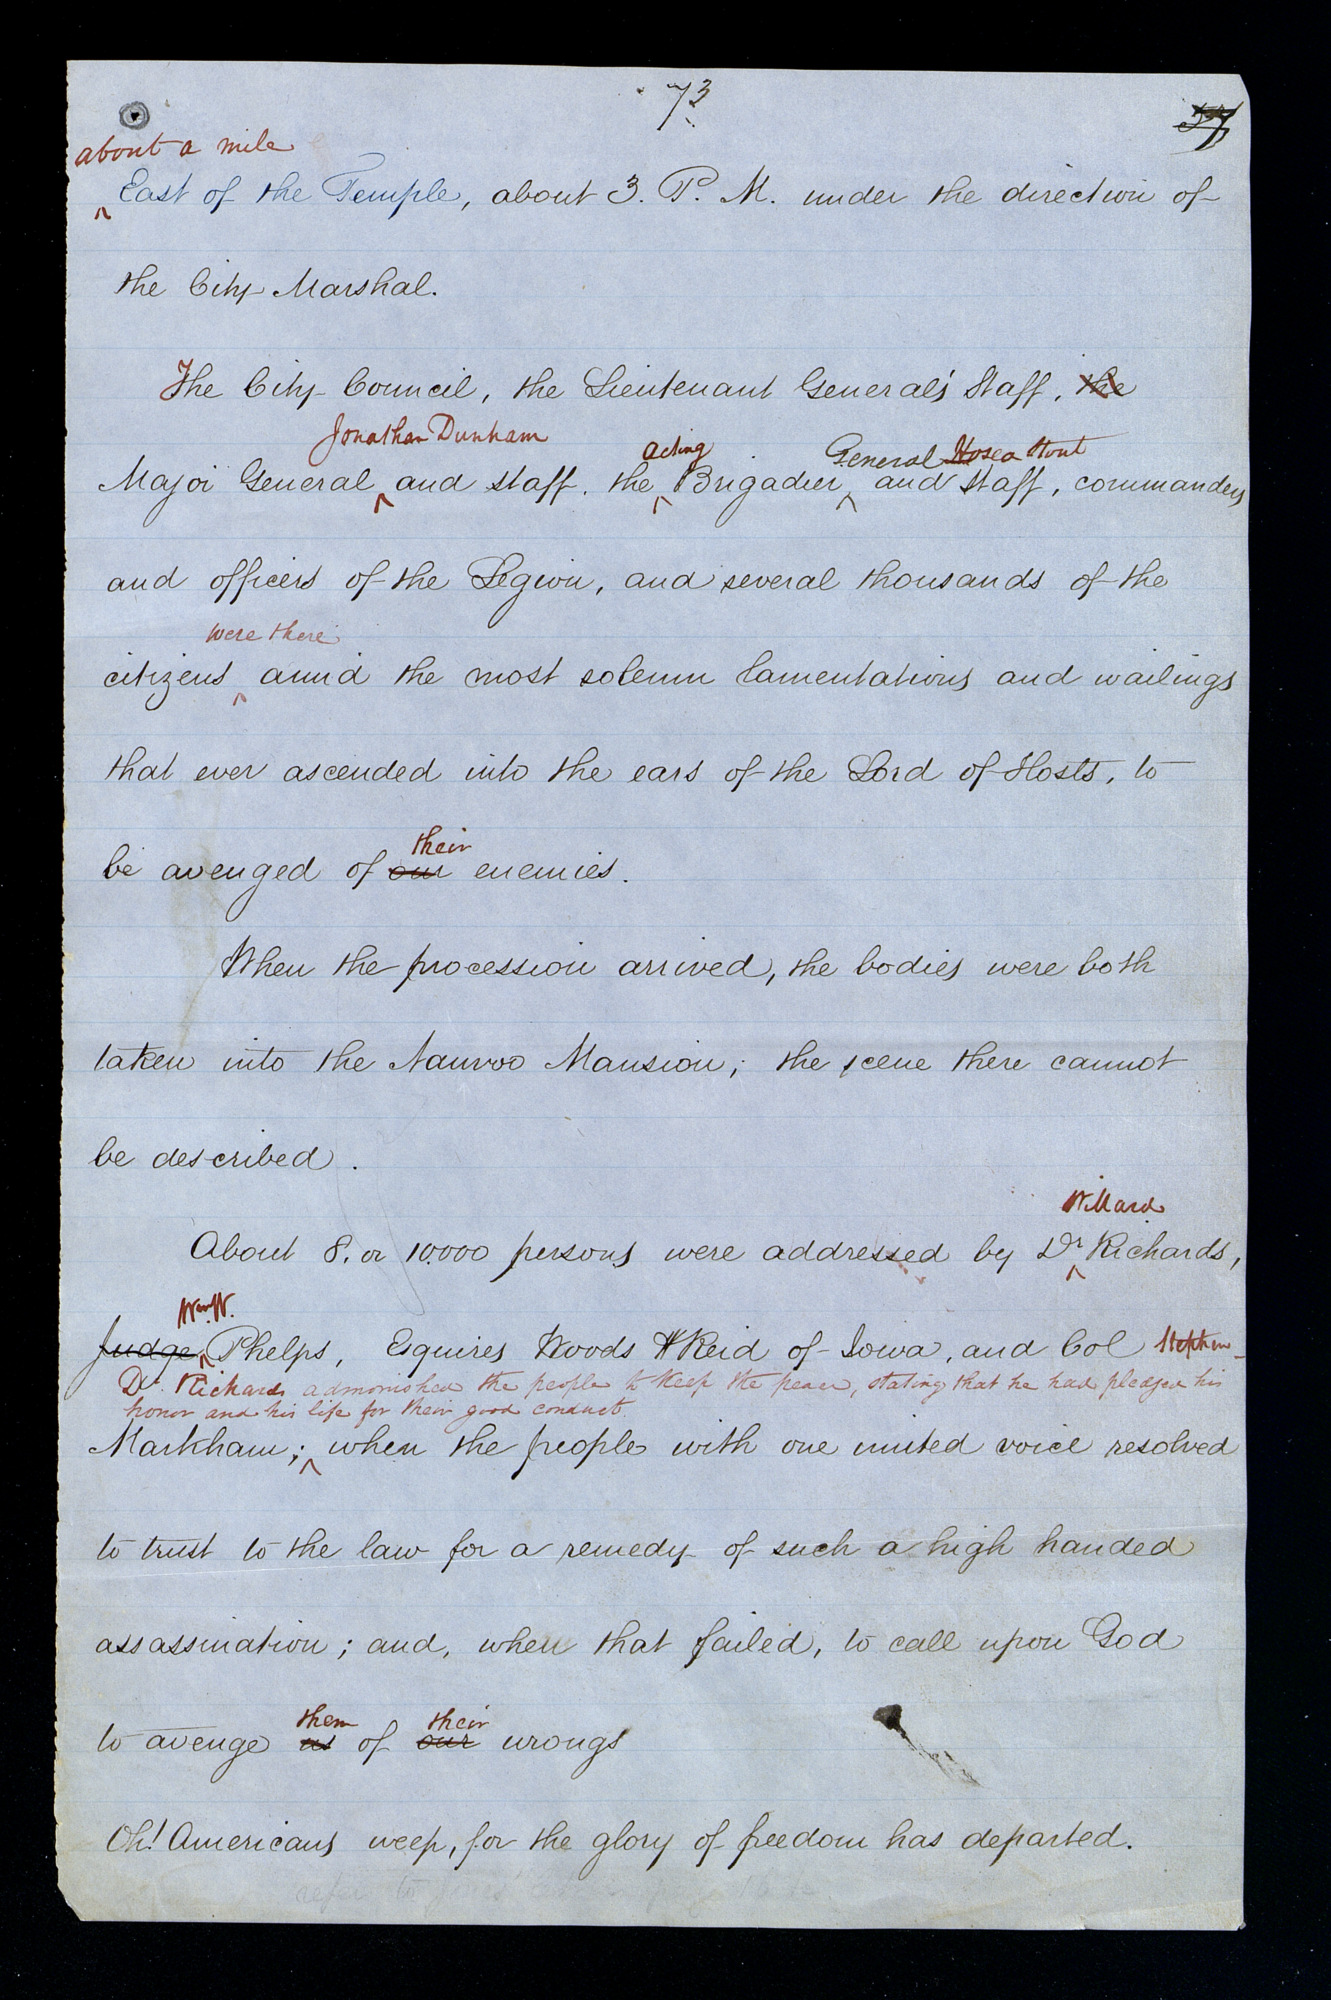 73
57
about a mile
East of the Temple, about 3. P. M. under the direction of
the City Marshal.
The City Council, the Lieutenant General's Staff, the
Jonathan Dunham acting General Hosea Stout
Major General and staff. the Brigadier and Staff, commanders
and officers of the Legion, and several thousands of the
were there
citizens amid the most solemn lamentations and wailings
that ever ascended into the ears of the Lord of Hosts, to
their
be avenged of our enemies.
When the procession arrived, the bodies were both
taken into the Nauvoo Mansion; the scene there cannot
be described.
Willard
About 8. or 10.000 persons were addressed by Dr Richards,
Wm. W.
Judge Phelps, Esquires Woods & Reid of Iowa, and Col Stephen
Dr. Richards admonished the people to keep the peace, stating that he had pledged his
honor and his life for their good conduct.
Markham; when the people with one united voice resolved
to trust to the law for a remedy of such a high handed
assassination; and, when that failed, to call upon God
them their
to avenge us of our wrongs
Oh! Americans weep, for the glory of freedom has departed.
refer to